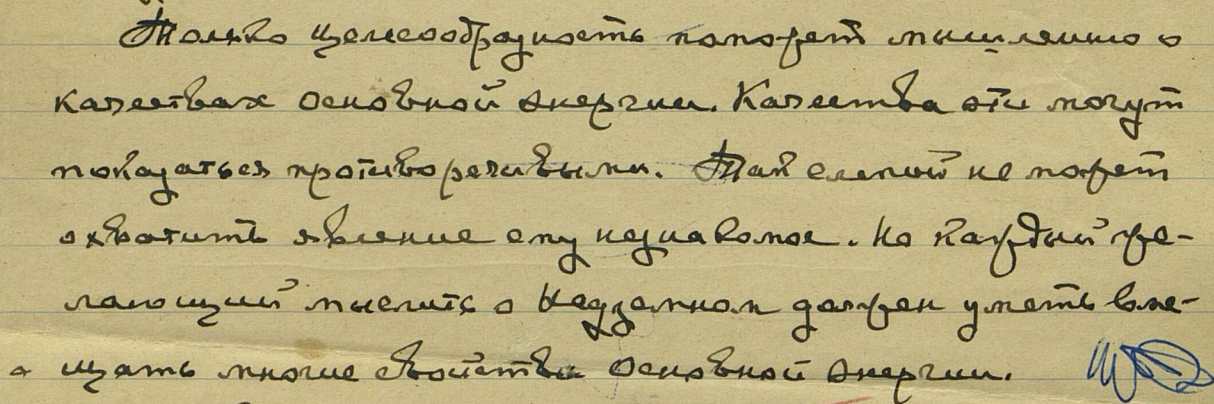 Только целесообразность поможет мышлению о
качествах основной энергии. Качества эти могут
показаться противоречивыми. Так слепой не может
охватить явление ему незнакомое. Но каждый же-
лающий мыслить о Надземном должен уметь вме-
щать многие свойства основной энергии.